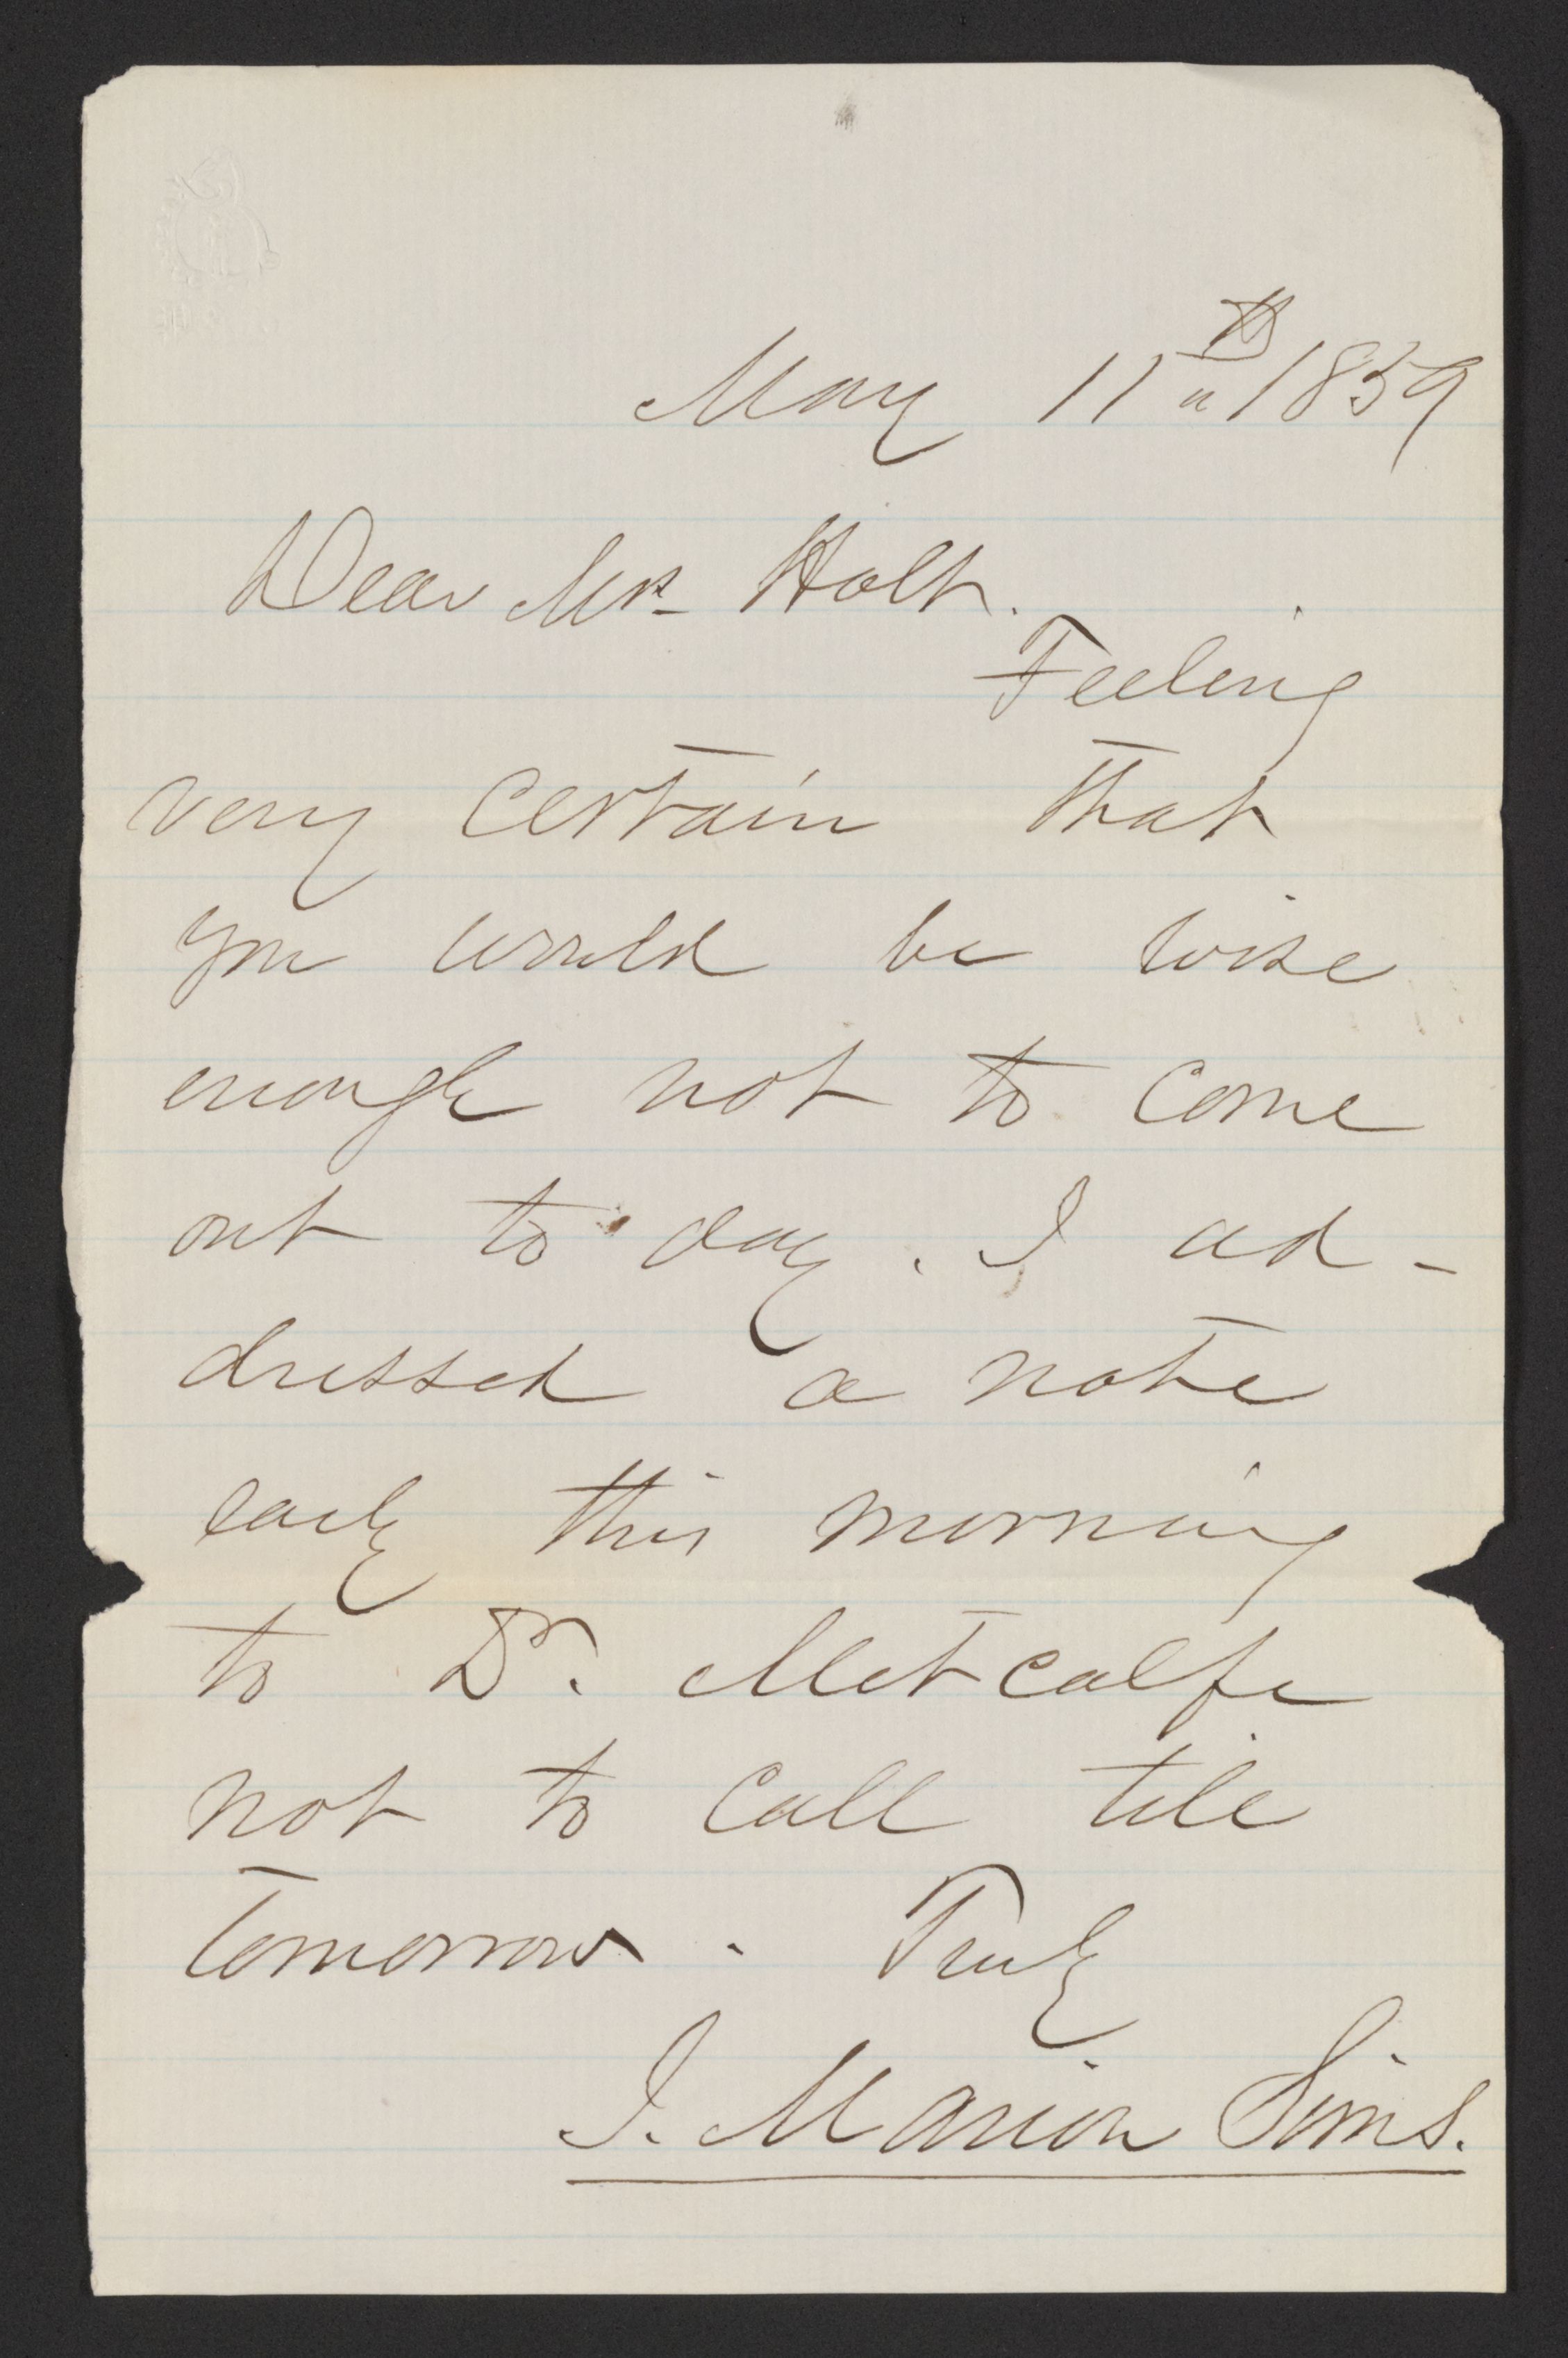 May 11th 1859
Dear Mrs Holt.
Feeling
very certain that
you would be wise
enough not to come
out to day. I ad-
dressed a note
early this morning
to Dr. Metcalfe
not to call till
tomorrow. Truly
J. Marion Sims.